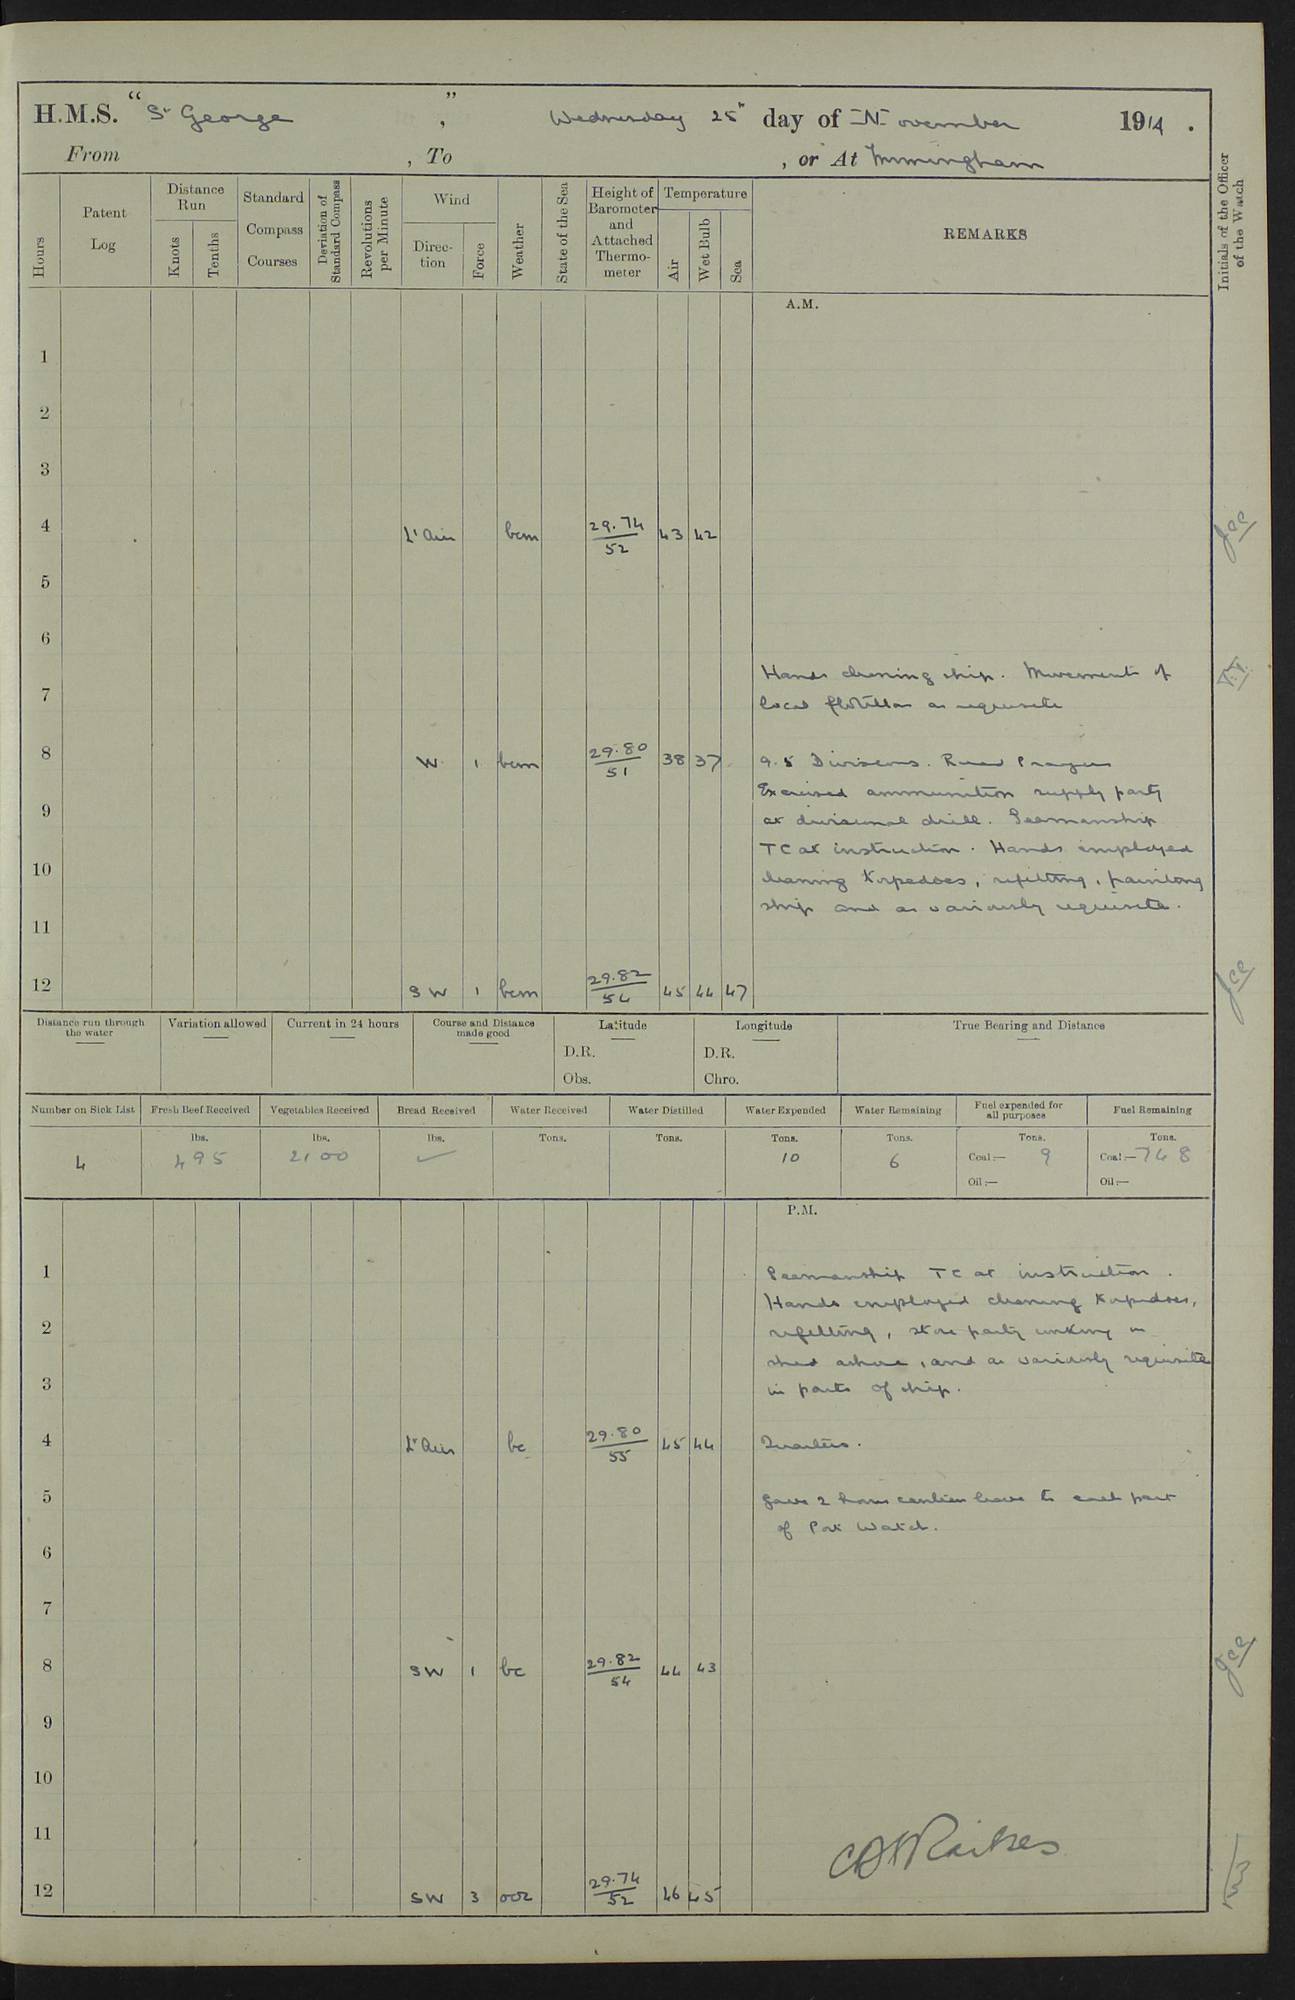 H.M.S. "St George", Wednesday 25th day of November 1914.
From , To , or At Immingham
Hours
Patent Log
Distance Run
Knots
Tenths
Standard Compass Courses
Deviation of Standard Compass
Revolutions per Minute
Wind
Direction
Force
Weather
State of the Sea
Height of Barometer and Attached Thermometer
Temperature
Air
Wet Bulb
Sea
REMARKS
Initials of the Officer of the Watch
A.M.
1
2
3
4 Lt Airs bcm 29.74/52 43 42
5
6
Hands cleaning ship. Movements of
7
local flotillas as requisite
8 W 1 bcm 29.80/51 38 37 9.5 Divisions. Read Prayers
Exercised ammunition supply party
9
at divisional drill. Seamanship
TC at instruction. Hands employed
10
cleaning torpedoes, refitting, painting
ship and as variously requisite.
11
12 SW 1 bcm 29.82/54 45 44 47
Distance run through the water
Variation allowed
Current in 24 hours
Course and Distance made good
Latitude
D.R.
Obs.
Longitude
D.R.
Chro.
True Bearing and Distance
Number on Sick List
4
Fresh Beef Received
lbs.
495
Vegetables Received
lbs.
2100
Bread Received
lbs.
✓
Water Received
Tons.
Water Distilled
Tons.
Water Expended
Tons.
10
Water Remaining
Tons.
6
Fuel expended for all purposes
Tons.
Coal:— 9
Oil:—
Fuel Remaining
Tons.
Coal:— 748
Oil:—
P.M.
1 Seamanship TC at instruction.
Hands employed cleaning torpedoes,
2 refitting, store party working in
shed ashore, and as variously requisite
3 in parts of ship.
4 Lt Airs bc 29.80/55 45 44 Quarters.
5 Gave 2 hours canteen leave to each part
of Port Watch.
6
7
8 SW 1 bc 29.82/54 44 43
9
10
11
12 SW 3 29.74/52 46 45